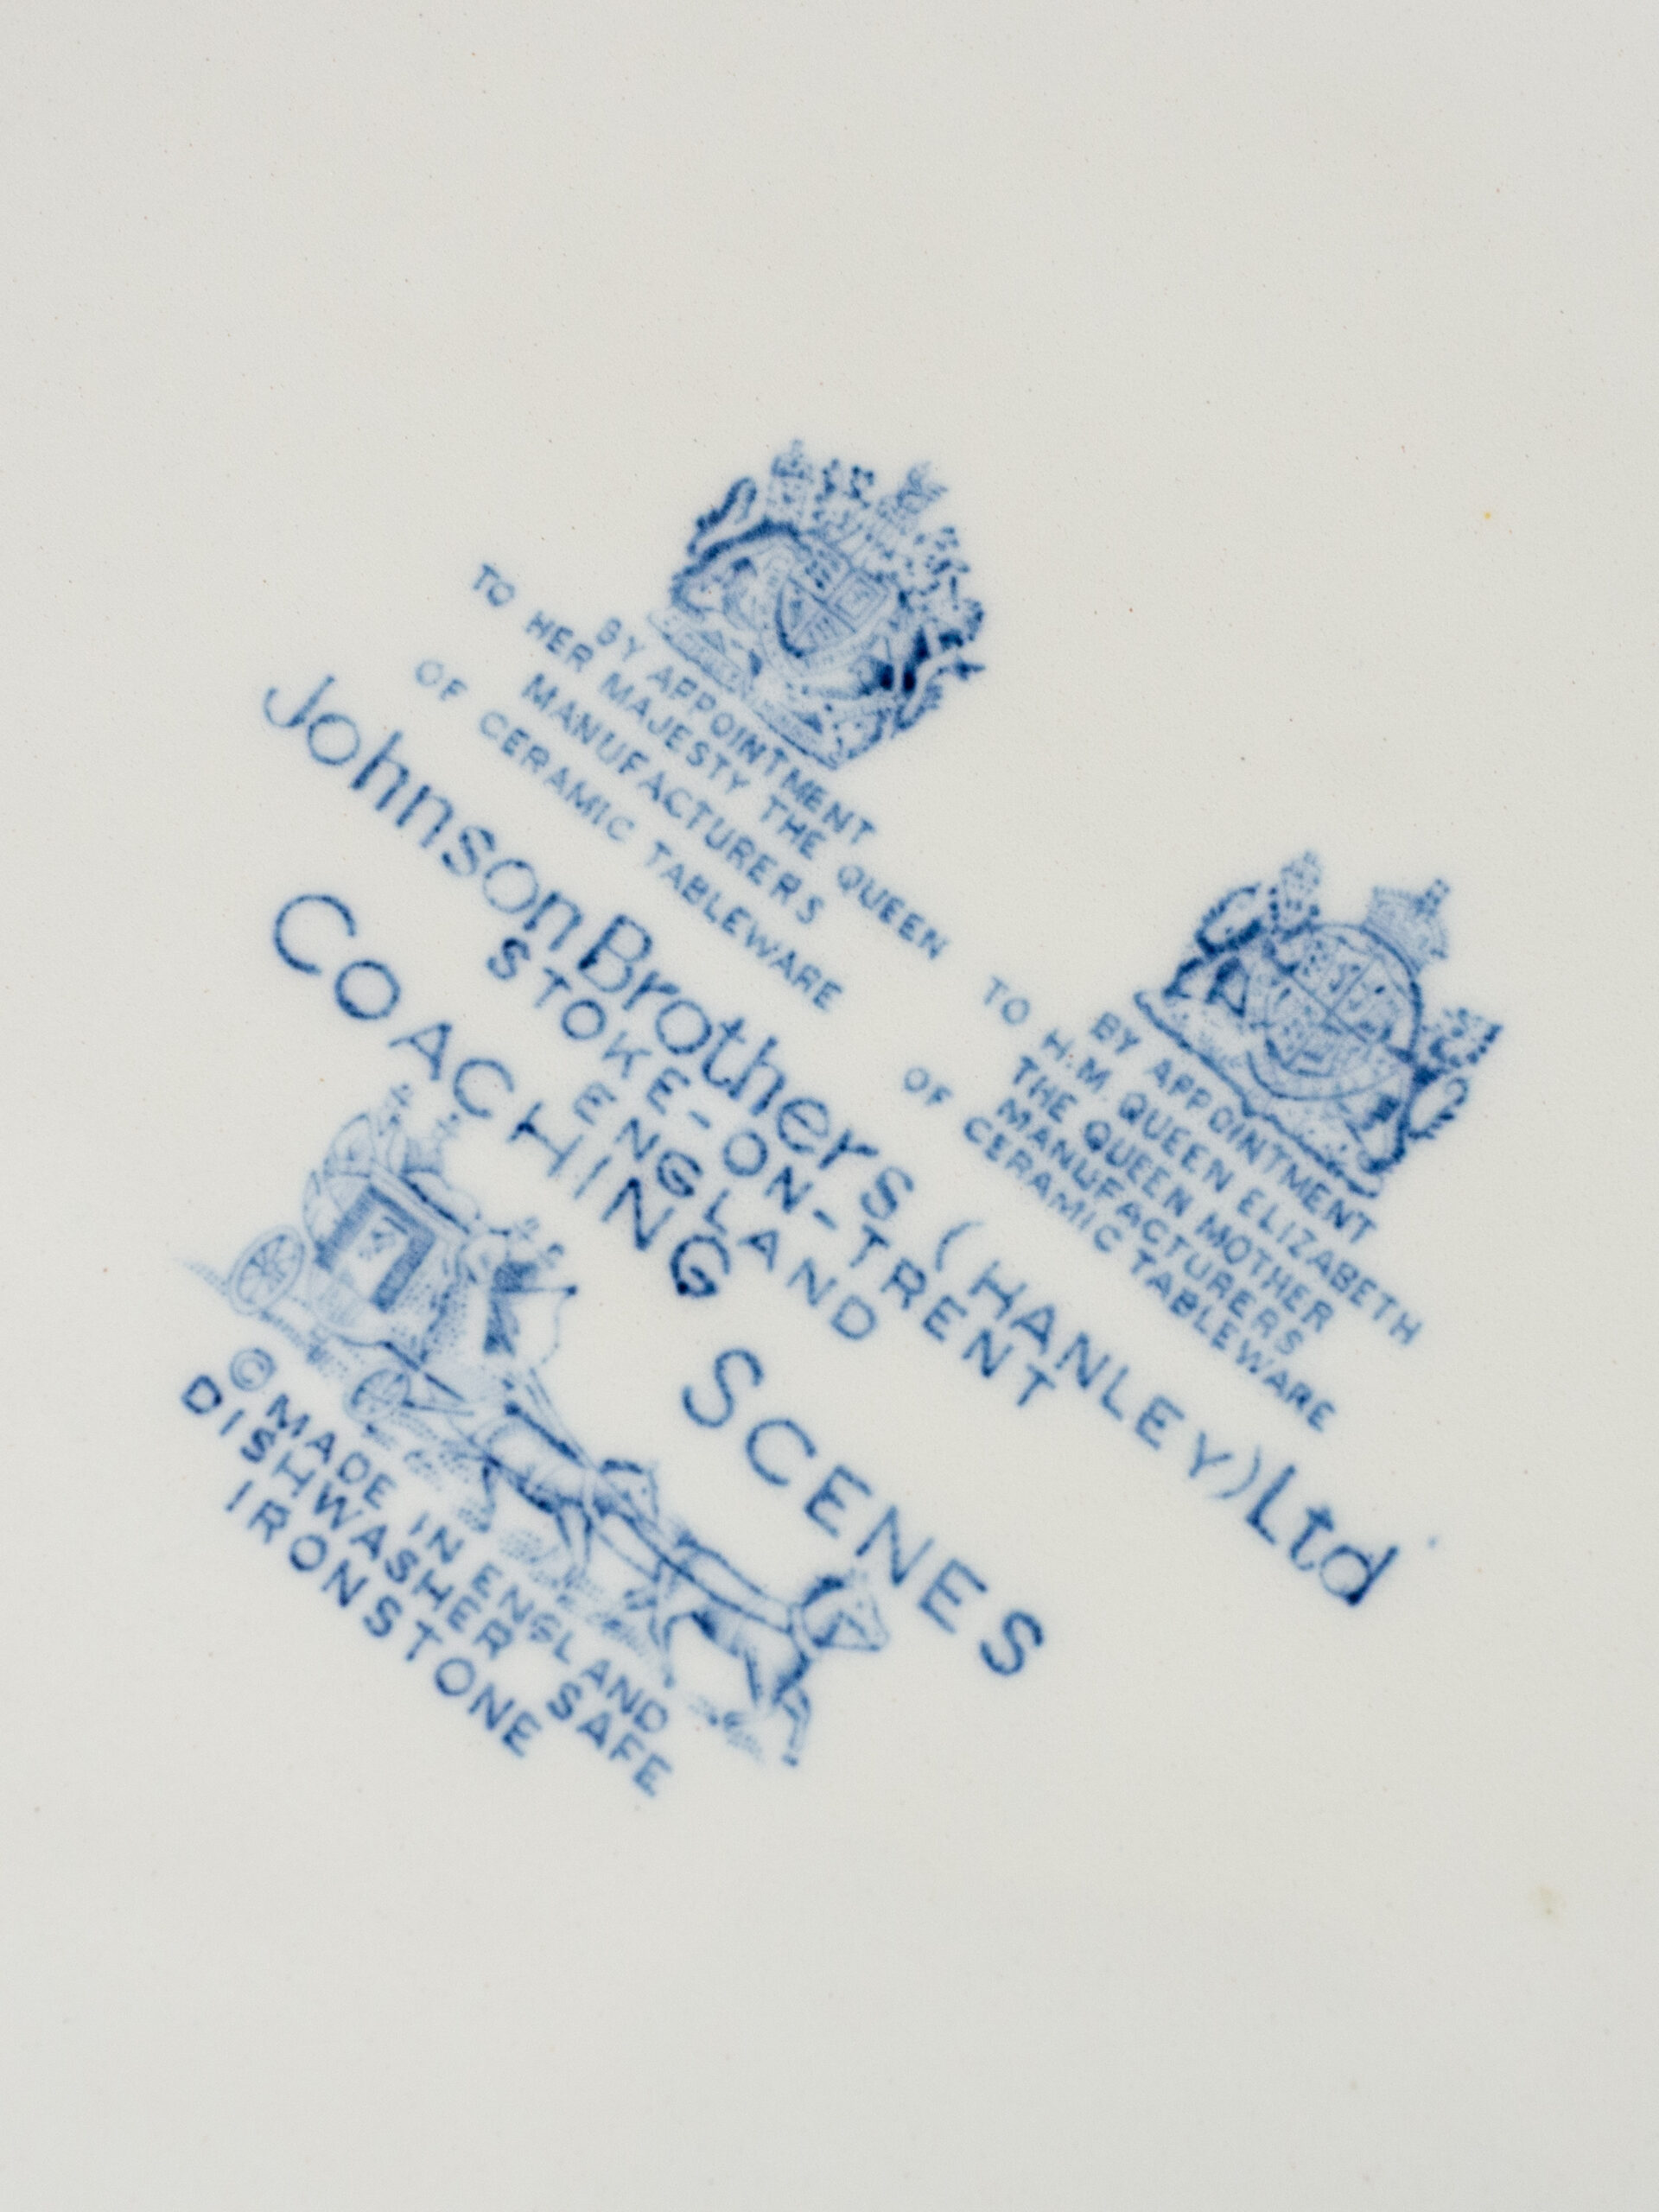 BY APPOINTMENT
TO HER MAJESTY THE QUEEN
MANUFACTURERS
OF CERAMIC TABLEWARE
BY APPOINTMENT
TO H.M. QUEEN ELIZABETH
THE QUEEN MOTHER
MANUFACTURERS
OF CERAMIC TABLEWARE
Johnson Brothers (HANLEY) Ltd
STOKE-ON-TRENT
ENGLAND
COACHING SCENES
© MADE IN ENGLAND
DISHWASHER SAFE
IRONSTONE